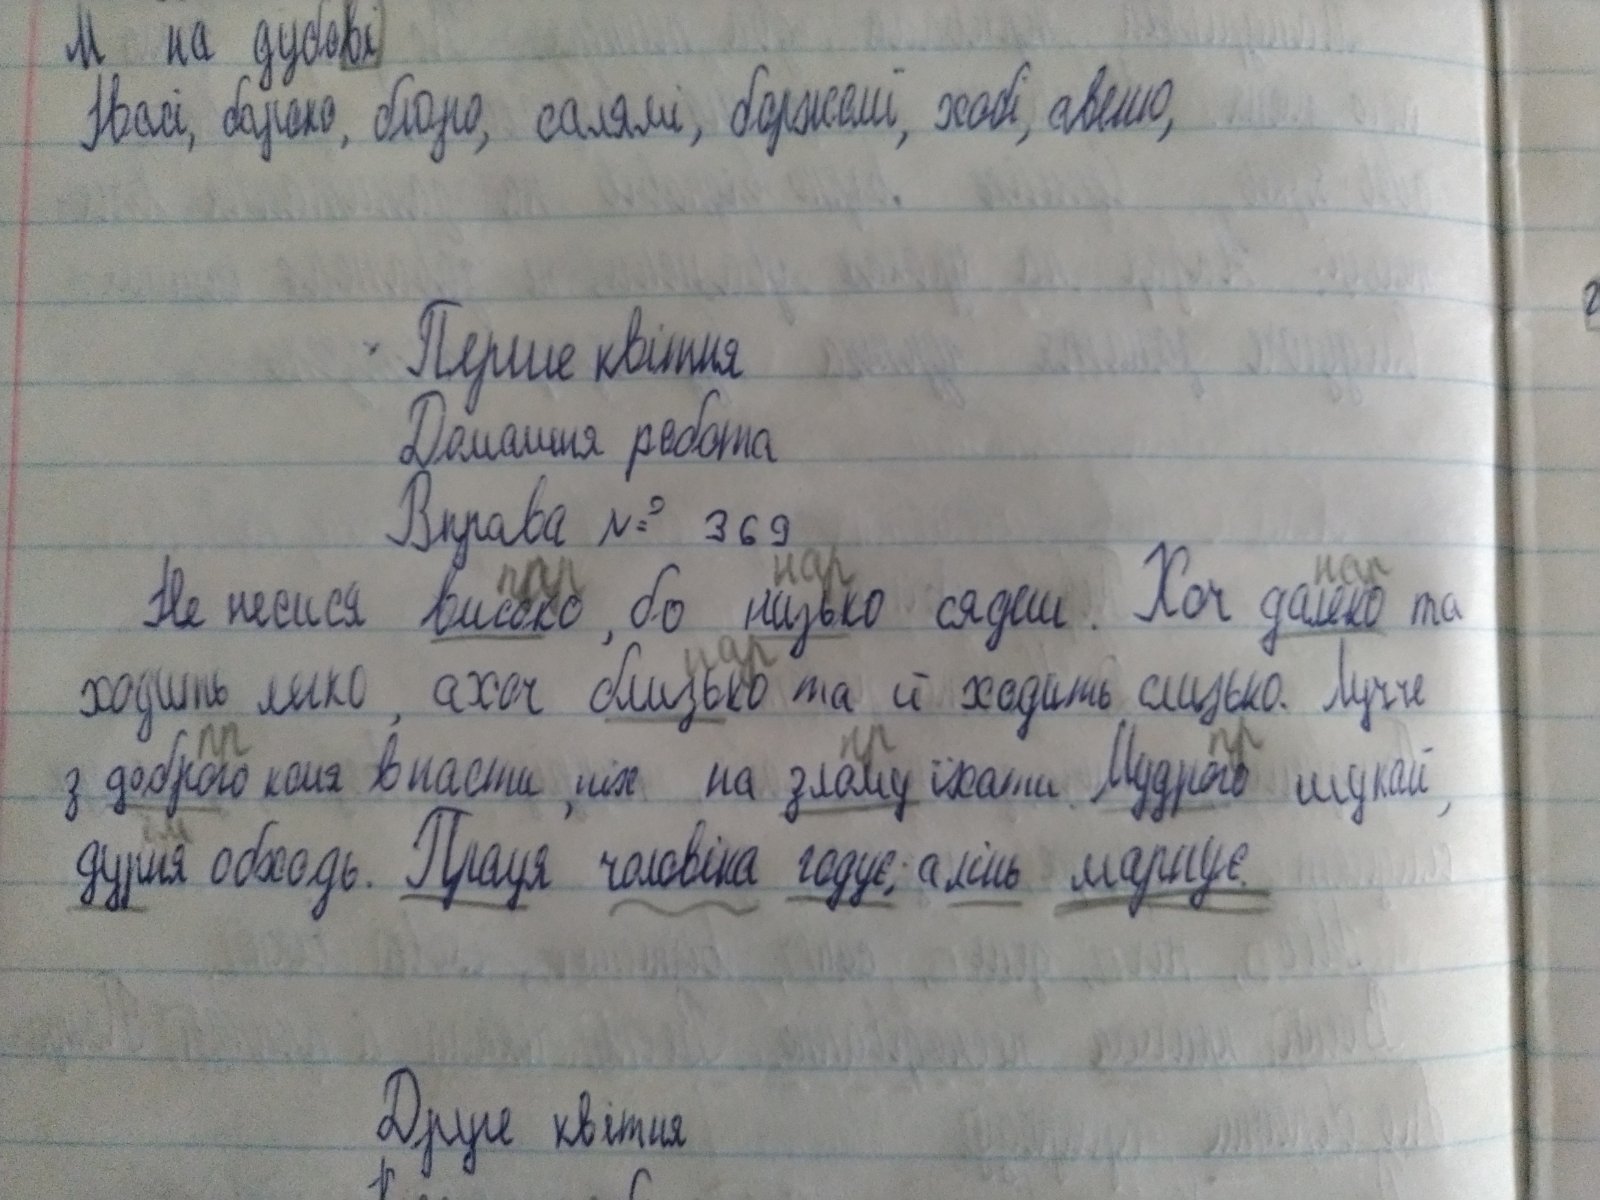 М на дубові
Івасі, барокко, бюро, салямі, боржомі, хобі, авеню,
Перше квітня
Домашня робота
Вправа № 369
прр нар нар
Не несися високо, бо низько сядеш. Хоч далеко та
нар
ходить легко, ахоч близько та й ходить слизько. Лучче
пр пр пр
з доброго коня впасти, ніж на злому їхати. Мудрого шукай,
ім
дурня обходь. Праця чоловіка годує, а лінь марнує.
Друге квітня